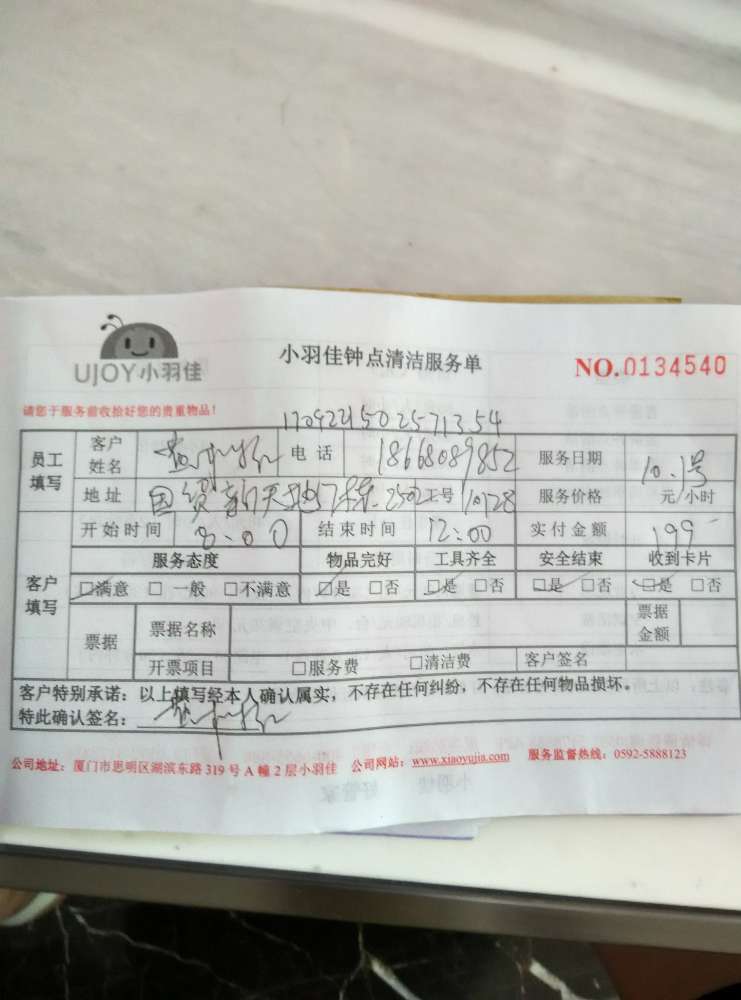 UJOY小羽佳
小羽佳钟点清洁服务单
NO.0134540
请您于服务前收拾好您的贵重物品！
员工填写 客户姓名 电话 18668089852 服务日期 10.1号
地址 国贸新天地7栋2502 工号 10728 服务价格 元/小时
开始时间 8:00 结束时间 12:00 实付金额 199
客户填写 服务态度 物品完好 工具齐全 安全结束 收到卡片
□满意 □一般 □不满意 □是 □否 □是 □否 □是 □否 □是 □否
票据 票据名称 票据金额
开票项目 □服务费 □清洁费 客户签名
客户特别承诺：以上填写经本人确认属实，不存在任何纠纷，不存在任何物品损坏。
特此确认签名：
公司地址：厦门市思明区湖滨东路319号A幢2层小羽佳 公司网站：www.xiaoyujia.com 服务监督热线：0592-5888123